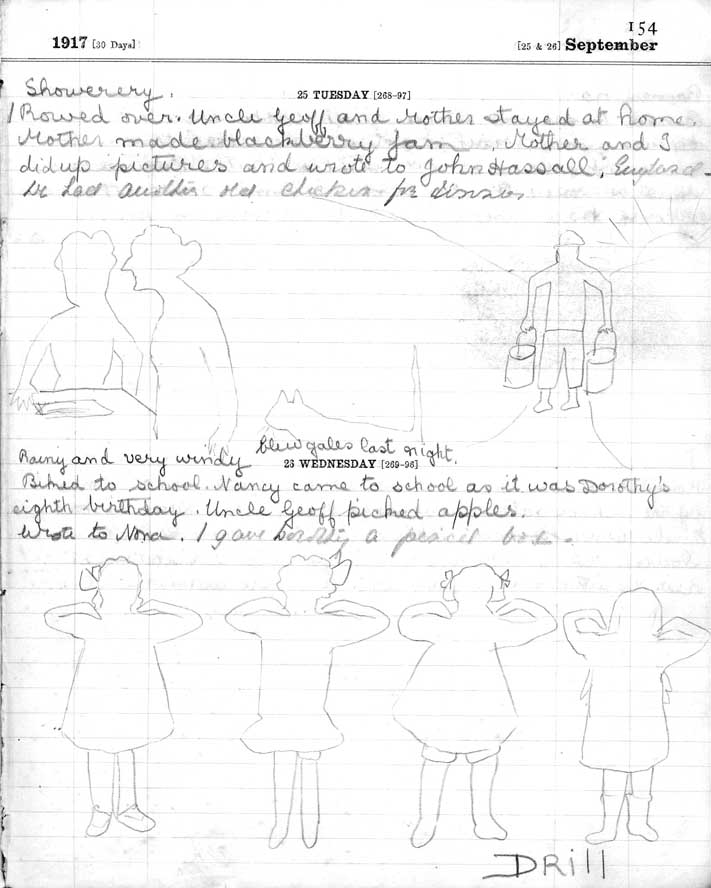 154
1917 [30 Days] [25 & 26] September
Showerery.
25 TUESDAY [268-97]
Rowed over. Uncle Geoff and Mother stayed at home.
Mother made blackberry Jam. Mother and I
did up pictures and wrote to John Hassall, England.
We had another old chicken for dinner.
Rainy and very windy blew gales last night.
26 WEDNESDAY [269-96]
Biked to school. Nancy came to school as it was Dorothy's
eighth birthday. Uncle Geoff picked apples.
Wrote to Nona. I gave Dorothy a pencil box.
DRill